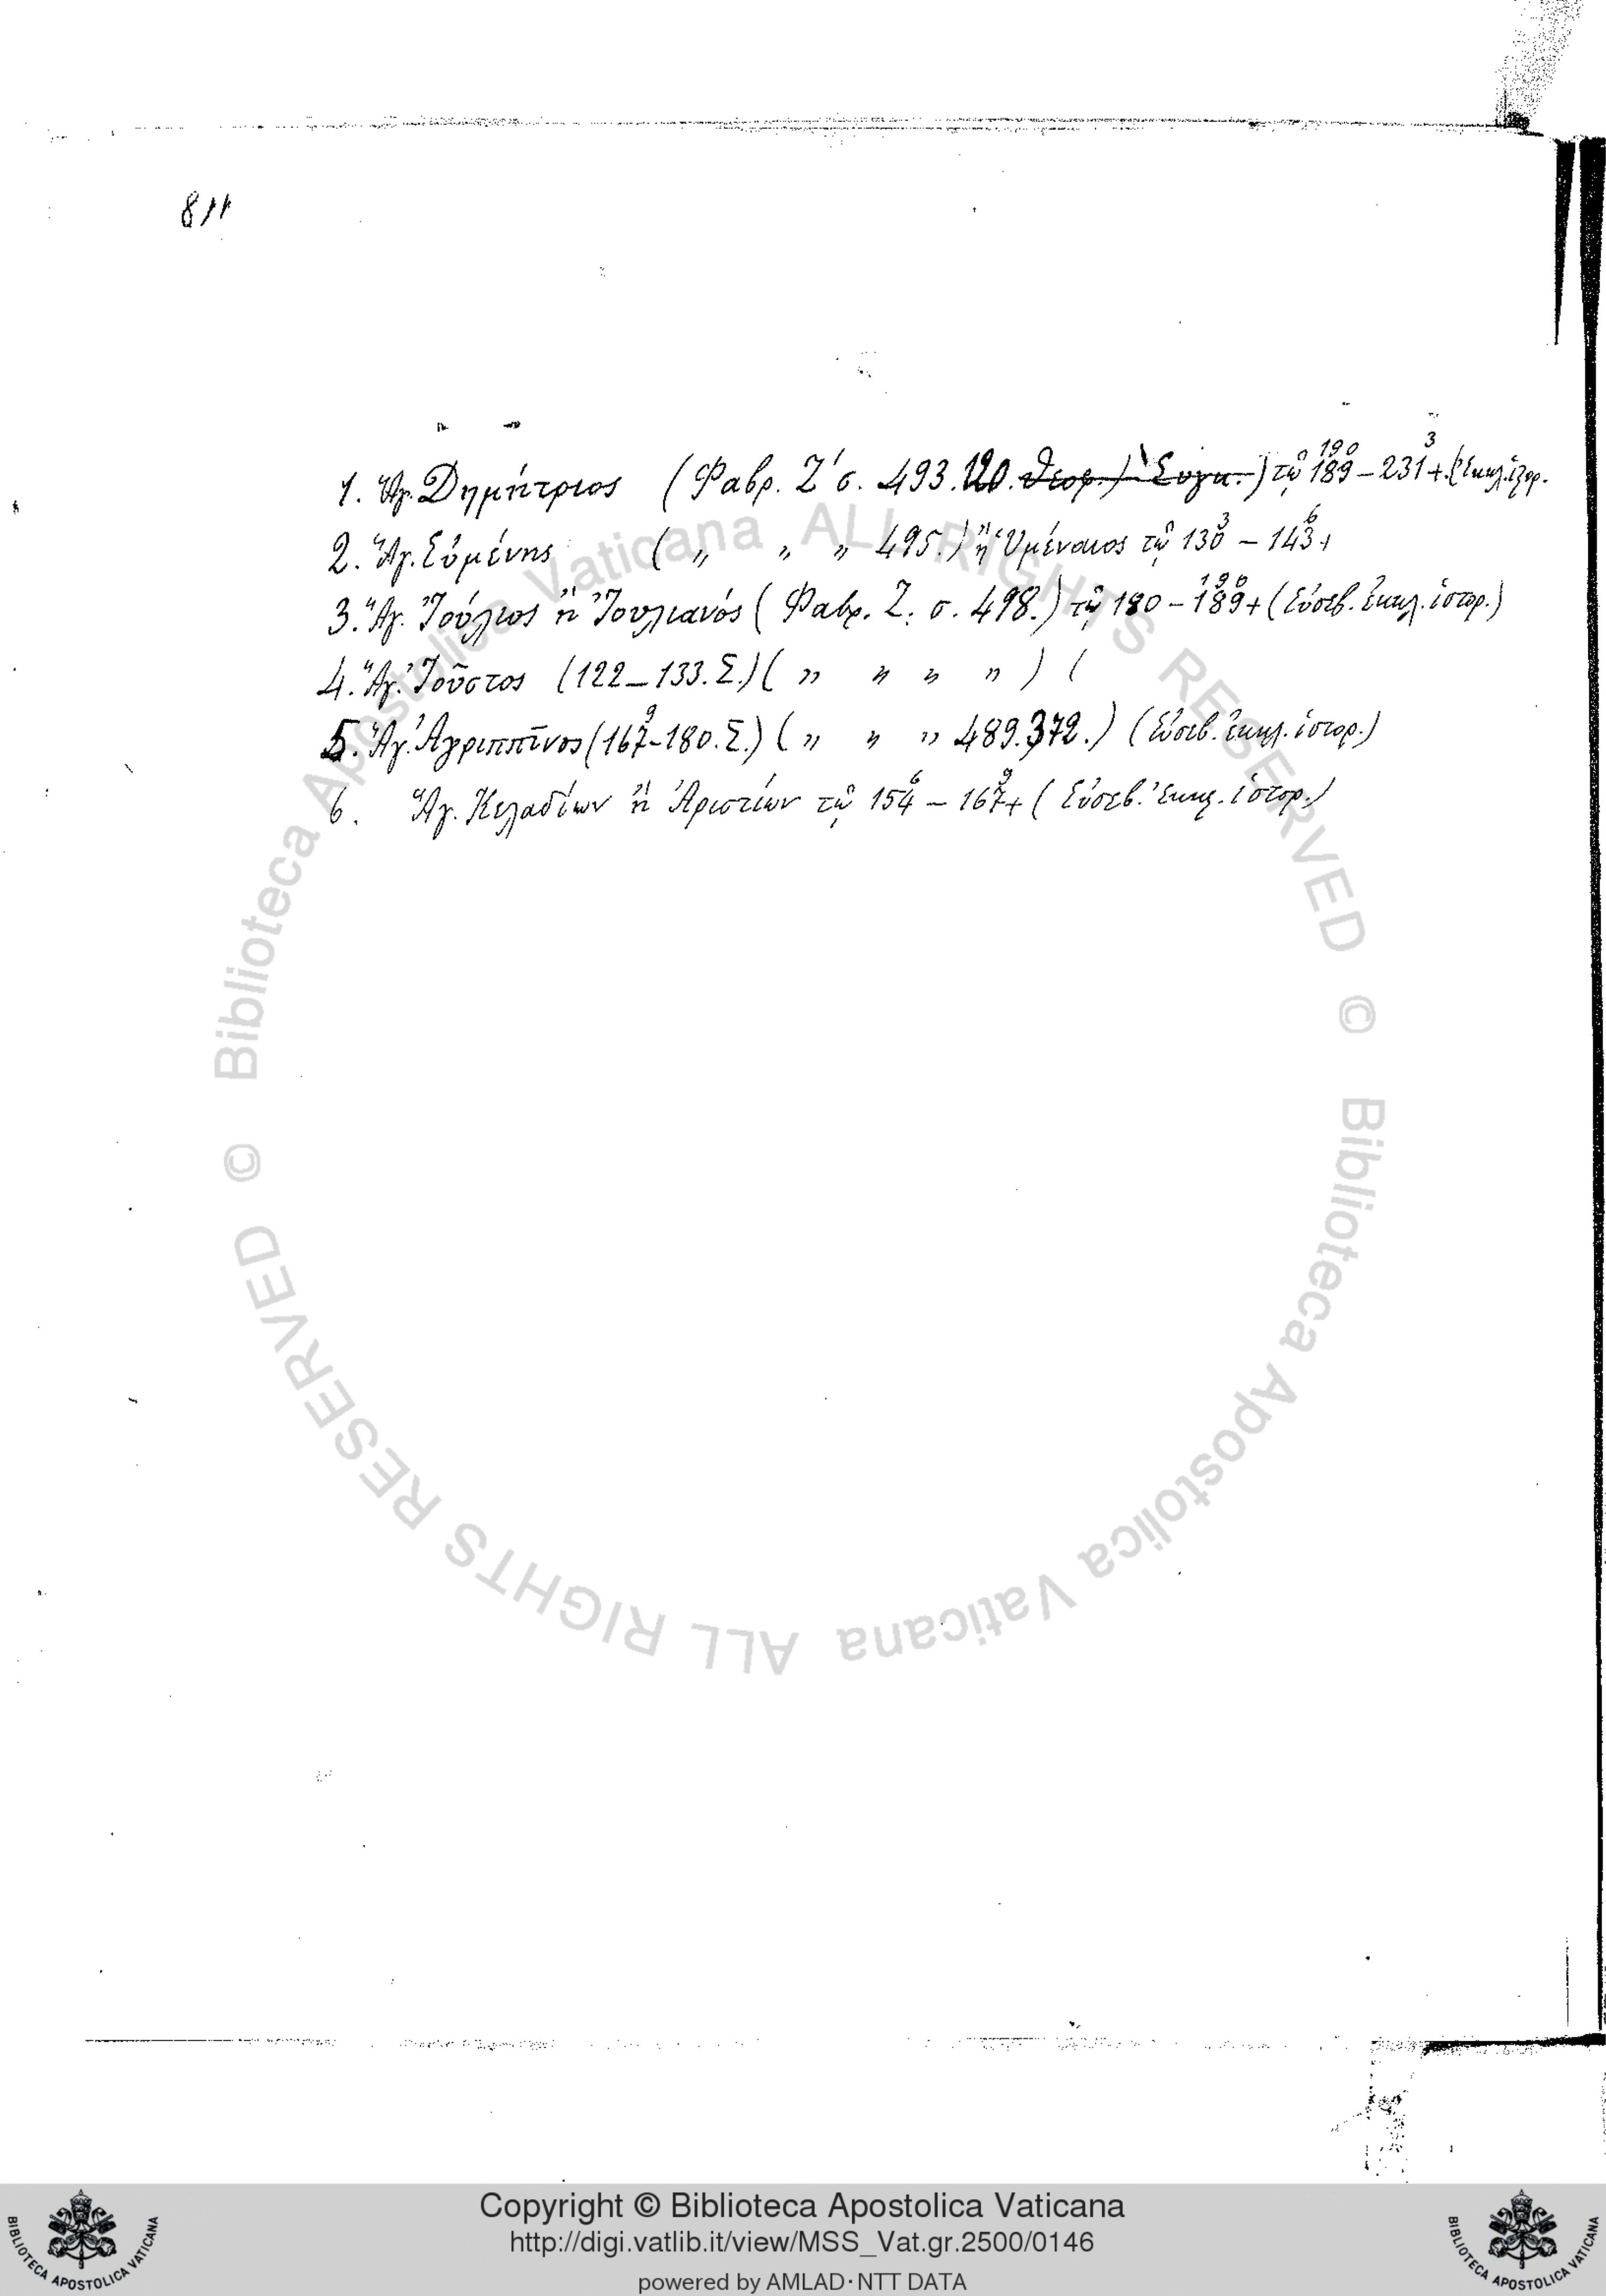 811
1. Ἅγ. Δημήτριος (Φαβρ. Ζ' σ. 493. 120. Θεορ.) Συγγ.) τῷ 189 190 – 231 3 + (Ἐκκλ. ἱστορ.
2. Ἅγ. Εὐμένης ( „ „ „ 495.) ἢ Ὑμέναιος τῷ 130 3 – 143 6 +
3. Ἅγ. Ἰούλιος ἢ Ἰουλιανός (Φαβρ. Ζ. σ. 498.) τῷ 180 – 189 190 + (Εὐσεβ. ἐκκλ. ἱστορ.)
4. Ἅγ. Ἰοῦστος (122–133. Σ.) ( „ „ „ „ ) (
5. Ἅγ. Ἀγριππῖνος (167 9 -180. Σ.) ( „ „ „ 489. 372.) (Εὐσεβ. ἐκκλ. ἱστορ.)
6. Ἅγ. Κελαδίων ἢ Ἀριστίων τῷ 154 6 – 167 9 + (Εὐσεβ. Ἐκκλ. ἱστορ.)
© Biblioteca Apostolica Vaticana ALL RIGHTS RESERVED
© Biblioteca Apostolica Vaticana ALL RIGHTS RESERVED
Copyright © Biblioteca Apostolica Vaticana
http://digi.vatlib.it/view/MSS_Vat.gr.2500/0146
powered by AMLAD·NTT DATA
BIBLIOTECA APOSTOLICA VATICANA
BIBLIOTECA APOSTOLICA VATICANA